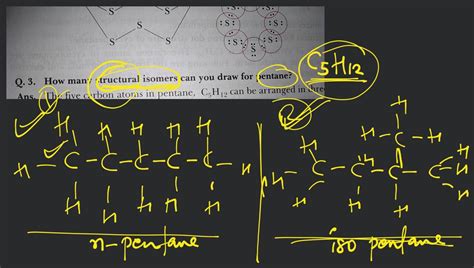 S S
S S
S
:S: :S:
:S: :S:
:S:
Q. 3. How many structural isomers can you draw for pentane?
C5H12
Ans. The five carbon atoms in pentane, C₅H₁₂ can be arranged in three
1
2
H H H H H
H-C-C-C-C-C-H
H H H H H
n-pentane
H-C-H
H H H
H-C-C-C-C-H
H H
iso pentane